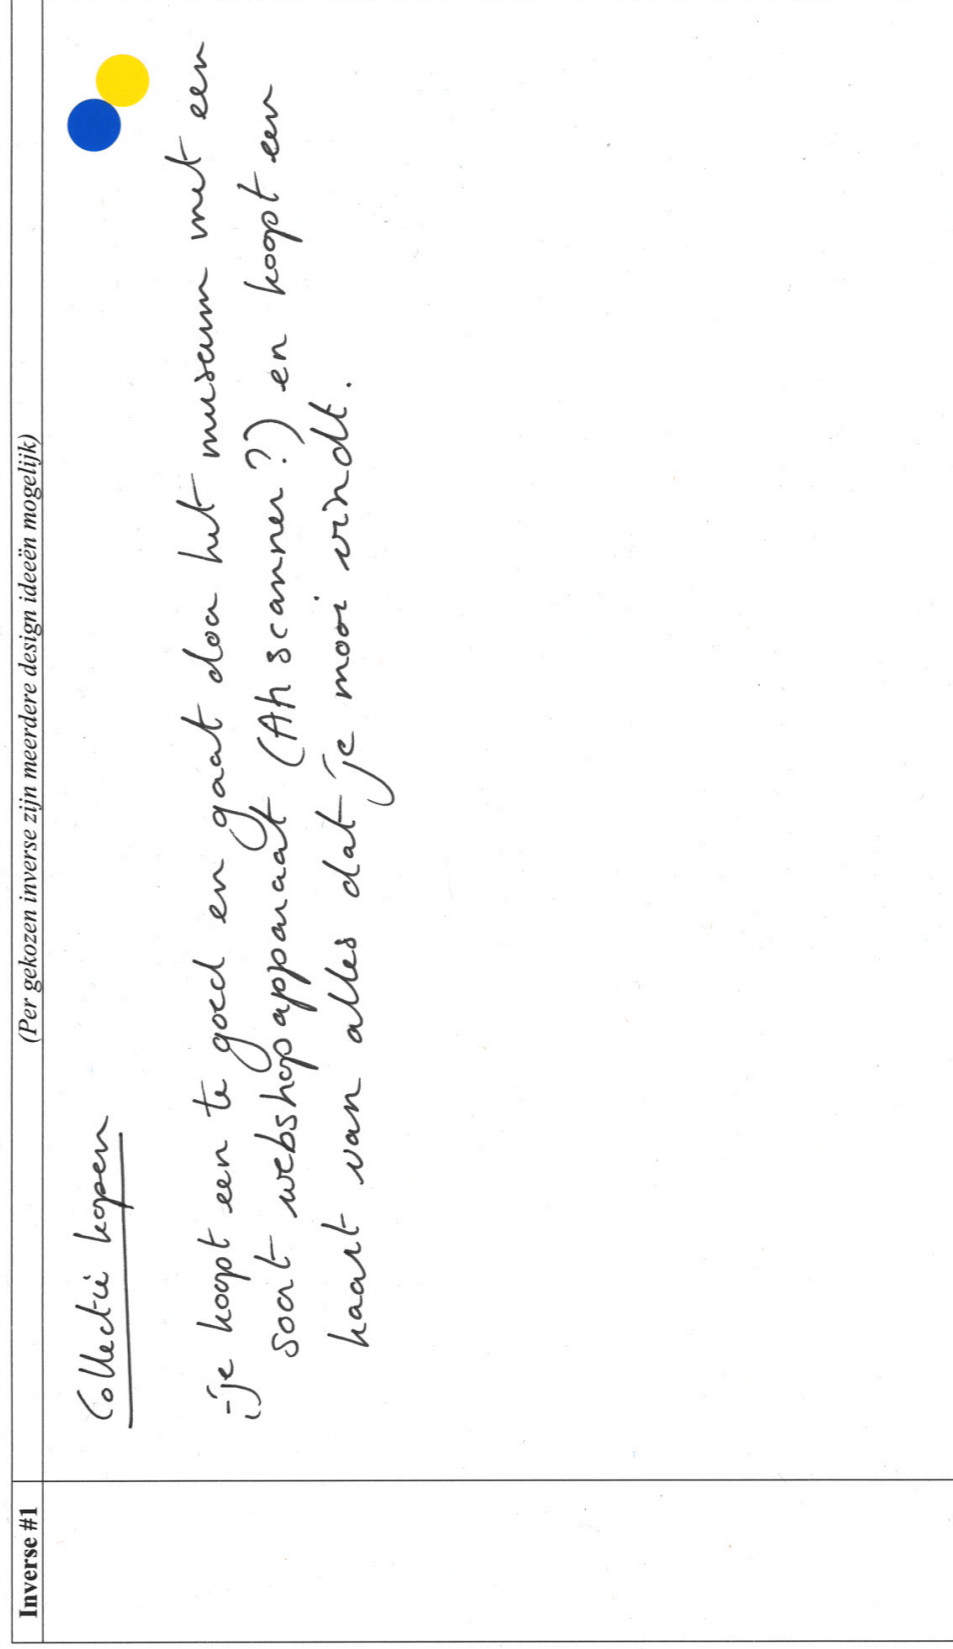 Inverse #1
(Per gekozen inverse zijn meerdere design ideeën mogelijk)
Collectie kopen
- je koopt een te goed en gaat door het museum met een
soort webshopapparaat (Ah scanner?) en koopt een
kaart van alles dat je mooi vindt.